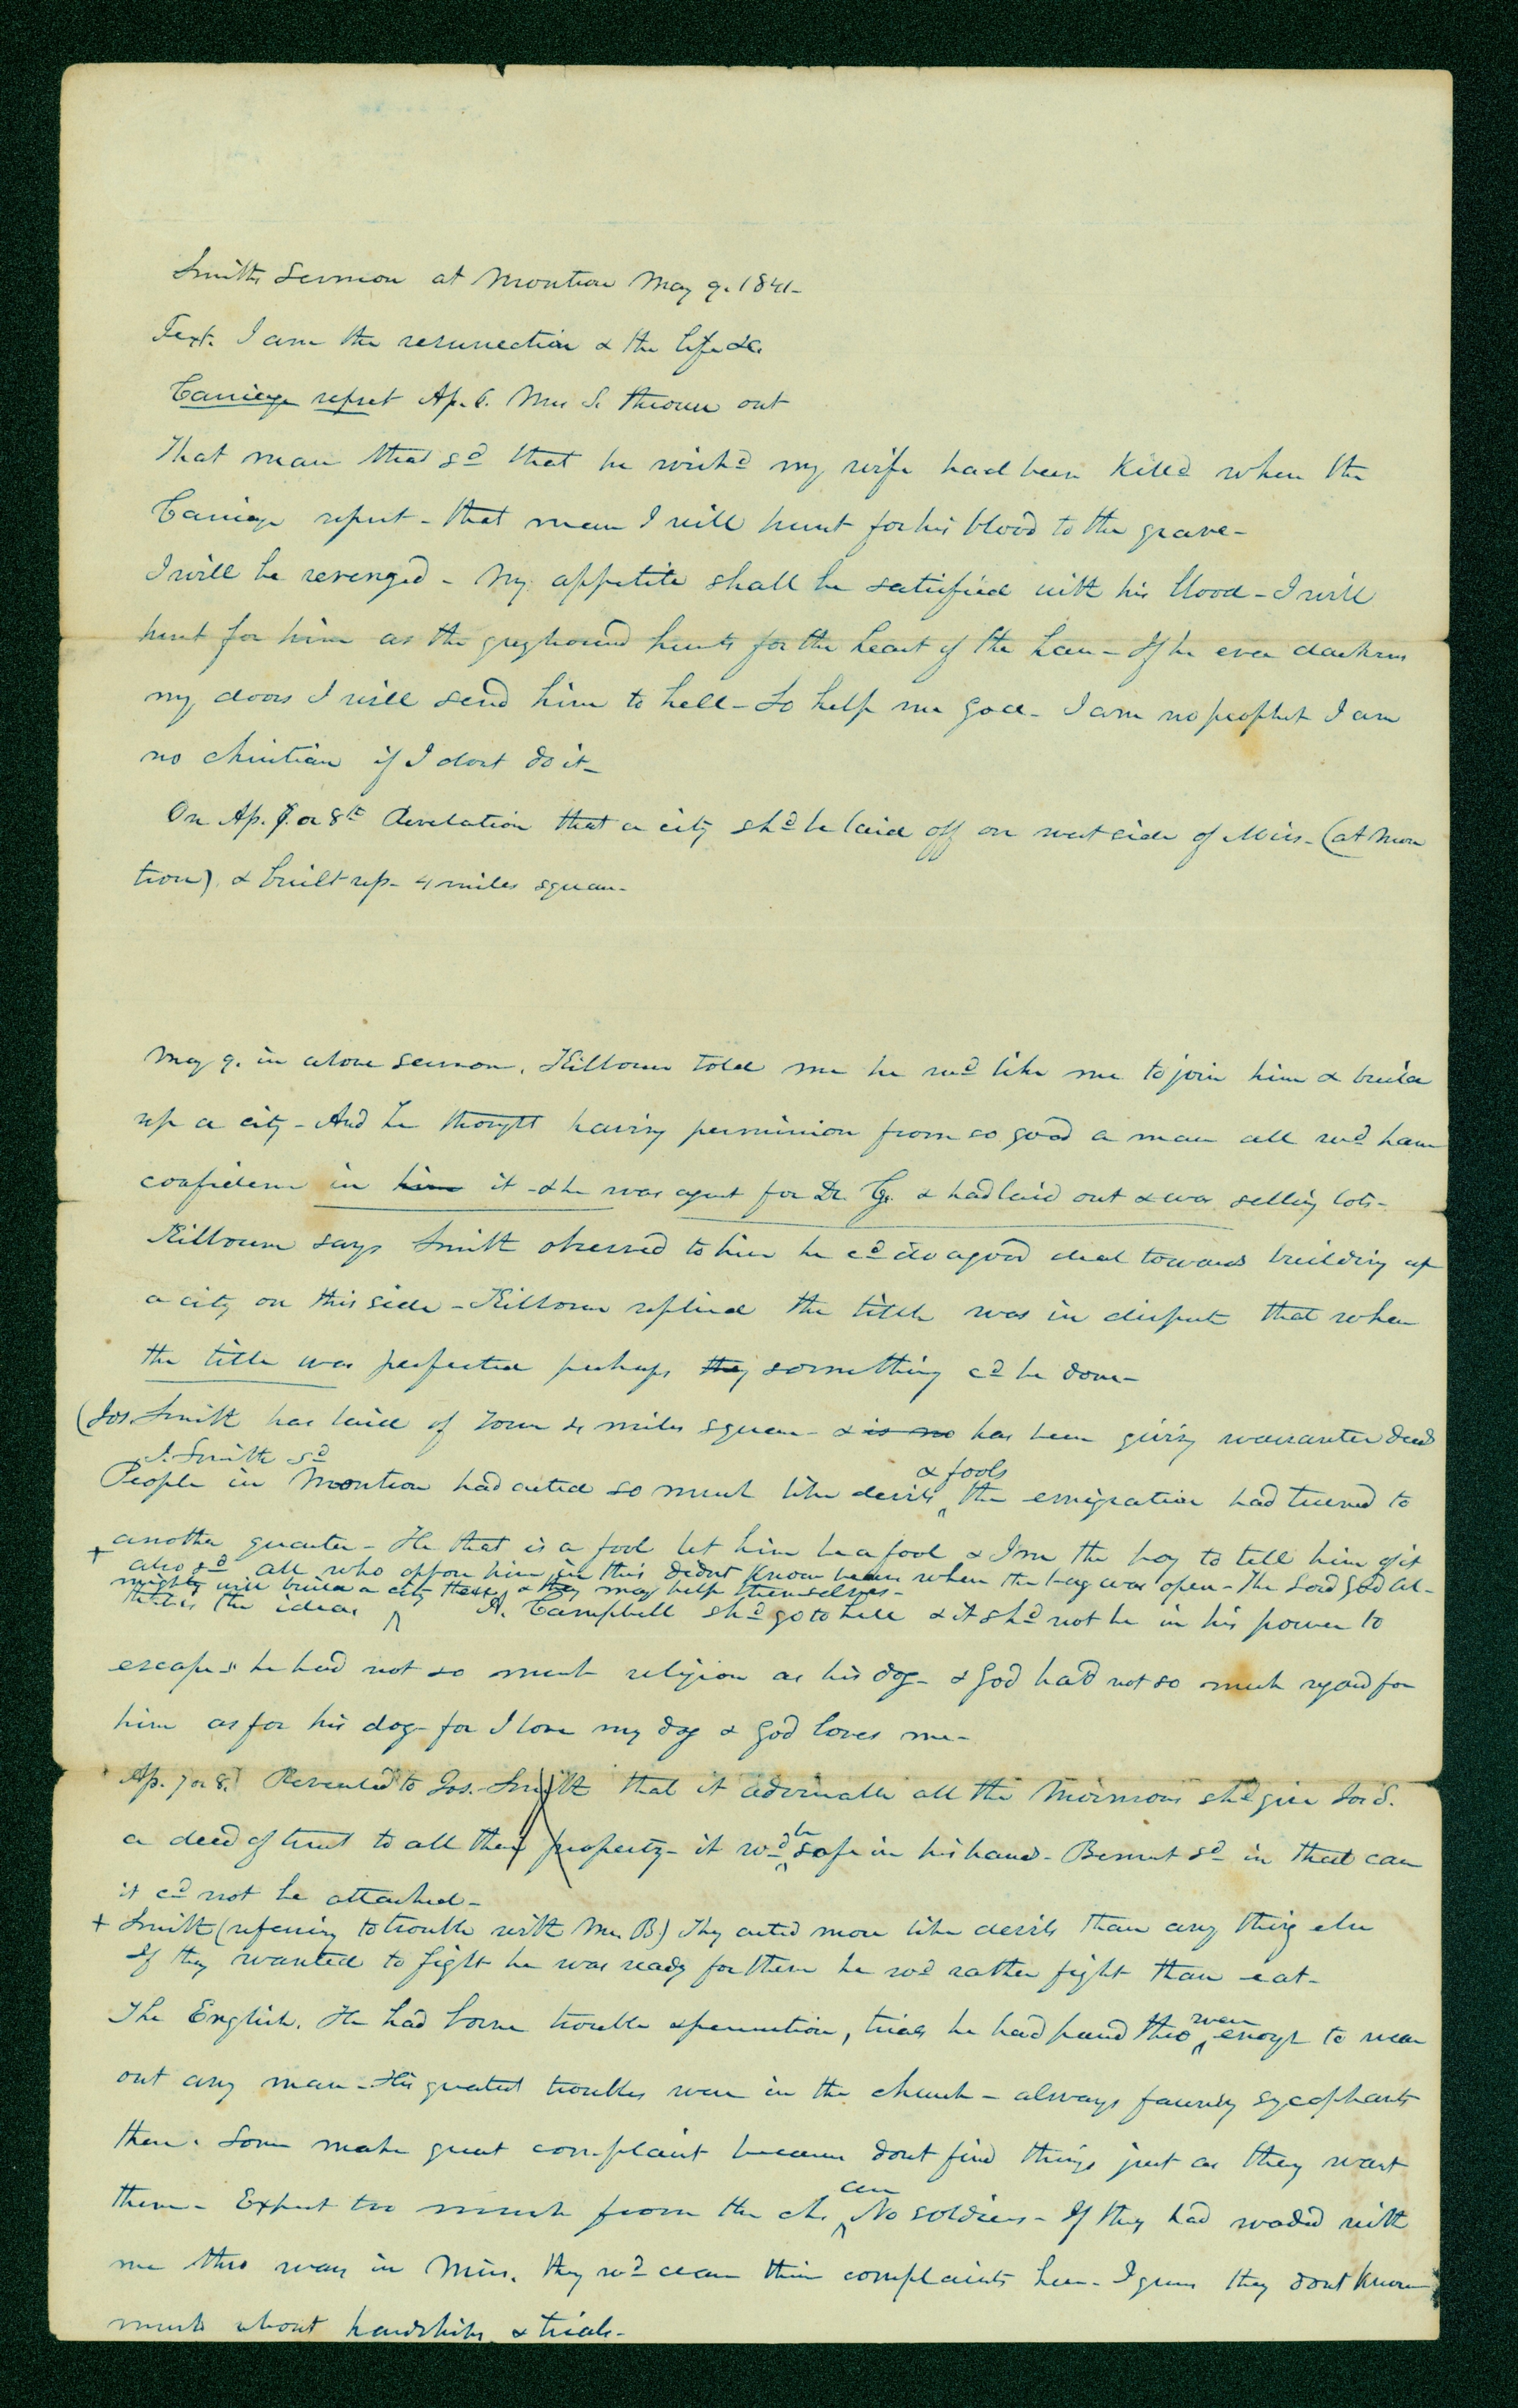 Smiths Sermon at Montrose May 9. 1841-
Text. I am the resurrection & the life &c.
Carriage upset Ap. 6. Mrs S. thrown out
That man that sd that he wishd my wife had been killd when the
Carriage upset - that man I will hunt for his blood to the grave-
I will be revenged - My appetite shall be satisfied with his blood - I will
hunt for him as the greyhound hunts for the heart of the hare - If he ever darkens
my doors I will send him to hell - So help me God - I am no prophet I am
no christian if I dont do it-
On Ap. 7. or 8th Revelation that a city shd be laid off on west side of Miss. (at Mon
trose) & built up - 4 miles square-
May 9. in above sermon. Kilbourn told me he wd like me to join him & build
up a city - And he thought having permission from so good a man all wd have
confidence in him it - & he was agent for Dr. G. & had laid out & was selling lots-
Kilbourn says Smith observed to him he cd do a good deal towards building up
a city on this side - Kilbourn replied the title was in dispute that when
the title was perfected perhaps they something cd be done-
(Jos. Smith has laid of town 4 miles square - & is no has been giving warrantee deeds
J. Smith sd
People in Montrose had acted so much like devils & fools the emigration had turned to
another quarter - He that is a fool let him be a fool & I'm the boy to tell him of it
+ also sd all who oppose him in this didnt know beans when the bag was open - The Lord God Al-
mighty will build a city there, & they may help themselves-
that is the idea
A. Campbell shd go to hell & it shd not be in his power to
escape & he had not so much religion as his dog - & God had not so much regard for
him as for his dog - for I love my dog & God loves me-
Ap. 7 or 8. Revealed to Jos. Smith that it advisable all the Mormons shd give Jos S.
a deed of trust to all their property - it wd be safe in his hand - Bennet sd in that case
it cd not be attached-
+ Smith (refering to trouble with Mr. B) They acted more like devils than any thing else
If they wanted to fight he was ready for them he wd rather fight than eat-
The English. He had borne trouble & persecution, trials he had passd thro were enough to wear
out any man - His greatest troubles were in the church - always fawning sycophants
there. Some make great complaint because dont find things just as they want
them - Expect too much from the ch. are No soldiers - If they had waded with
me thro wars in Miss. they wd cease their complaints here - I guess they dont know
much about hardships & trials-